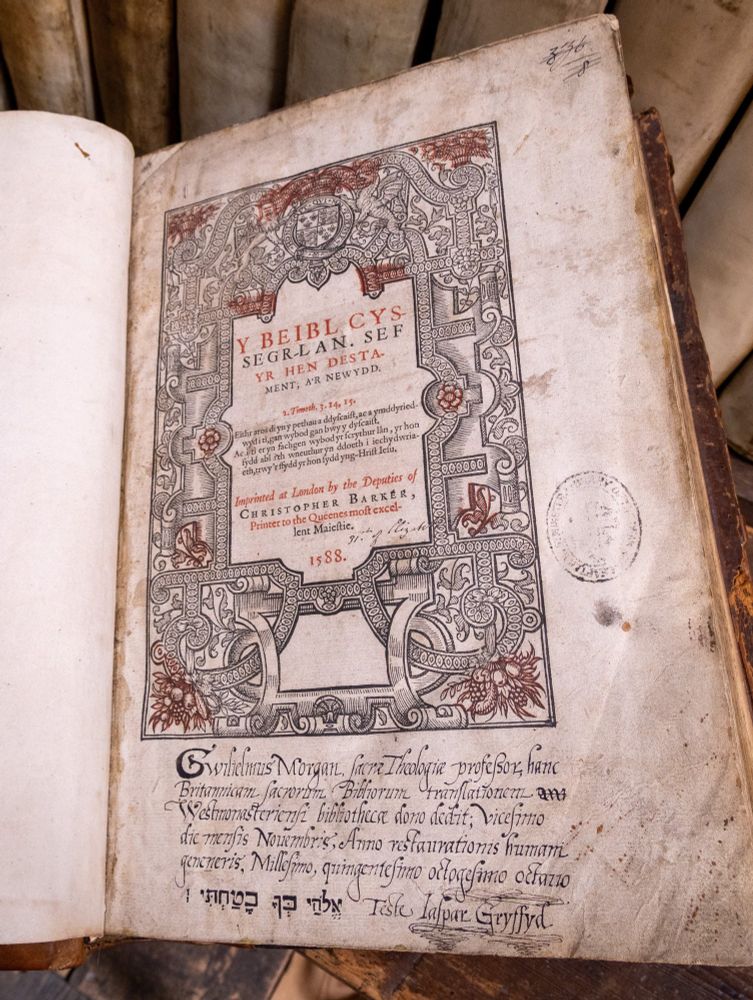 Y BEIBL CYS-
SEGR-LAN. SEF
YR HEN DESTA-
MENT, A'R NEWYDD.
2. Timoth. 3. 14, 15.
Eithr aros di yn y pethau a ddyscaist, ac a ymddyried-
wyd i ti, gan wybod gan bwy y dyscaist.
Ac i ti er yn fachgen wybod yr scrythur lân, yr hon
sydd abl i'th wneuthur yn ddoeth i iechydwria-
eth, trwy'r ffydd yr hon sydd yng-Hrist Iesu.
Imprinted at London by the Deputies of
CHRISTOPHER BARKER,
Printer to the Queenes most excel-
lent Maiestie.
1588.
Gwilielmus Morgan, sacræ Theologiæ professor, hanc
Britannicam sacrorum Bibliorum translationem
Westmonasteriensi bibliothecæ dono dedit; Vicesimo
die mensis Novembris, Anno restaurationis humani
geneneris, Millesimo, quingentesimo octogesimo octavo
אֱלֹהַי בְּךָ בָטַחְתִּי
Teste Iaspar Gryffyd